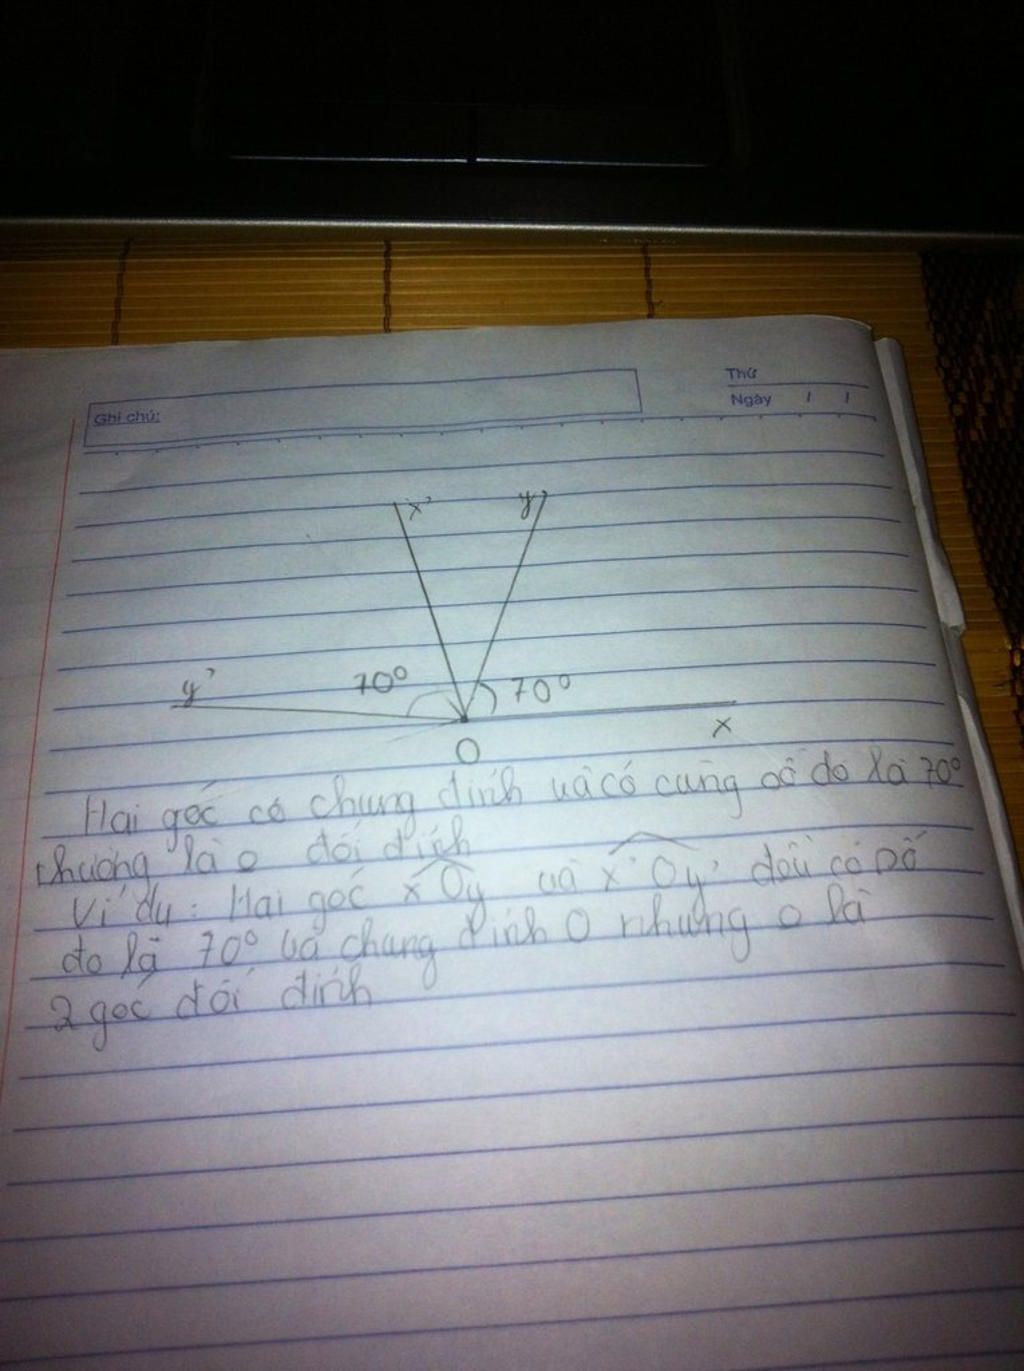 Ghi chú:
Thứ
Ngày / /
x' y
y' 70° 70°
O x
Hai góc có chung đỉnh và có cùng số đo là 70°
nhưng là o đối đỉnh
Ví dụ: Hai góc xOy và x'Oy' đều có số
đo là 70° và chung đỉnh O nhưng o là
2 góc đối đỉnh